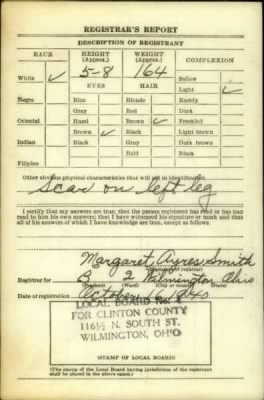 REGISTRAR'S REPORT
DESCRIPTION OF REGISTRANT
RACE HEIGHT (Approx.) WEIGHT (Approx.) COMPLEXION
White ✓ 5-8 164 Sallow
EYES HAIR Light ✓
Negro Blue Blonde Ruddy
Gray Red Dark
Oriental Hazel Brown ✓ Freckled
Brown ✓ Black Light brown
Indian Black Gray Dark brown
Bald Black
Filipino
Other obvious physical characteristics that will aid in identification
Scar on left leg
I certify that my answers are true; that the person registered has read or has had
read to him his own answers; that I have witnessed his signature or mark and that
all of his answers of which I have knowledge are true, except as follows:
Margaret Ayres Smith
(Signature of registrar)
Registrar for B 2 Wilmington Ohio
(Precinct) (Ward) (City or county) (State)
Date of registration October 16 1940
LOCAL BOARD No.
FOR CLINTON COUNTY
116½ N. SOUTH ST.
WILMINGTON, OHIO
STAMP OF LOCAL BOARD
(The stamp of the Local Board having jurisdiction of the registrant
shall be placed in the above space.)